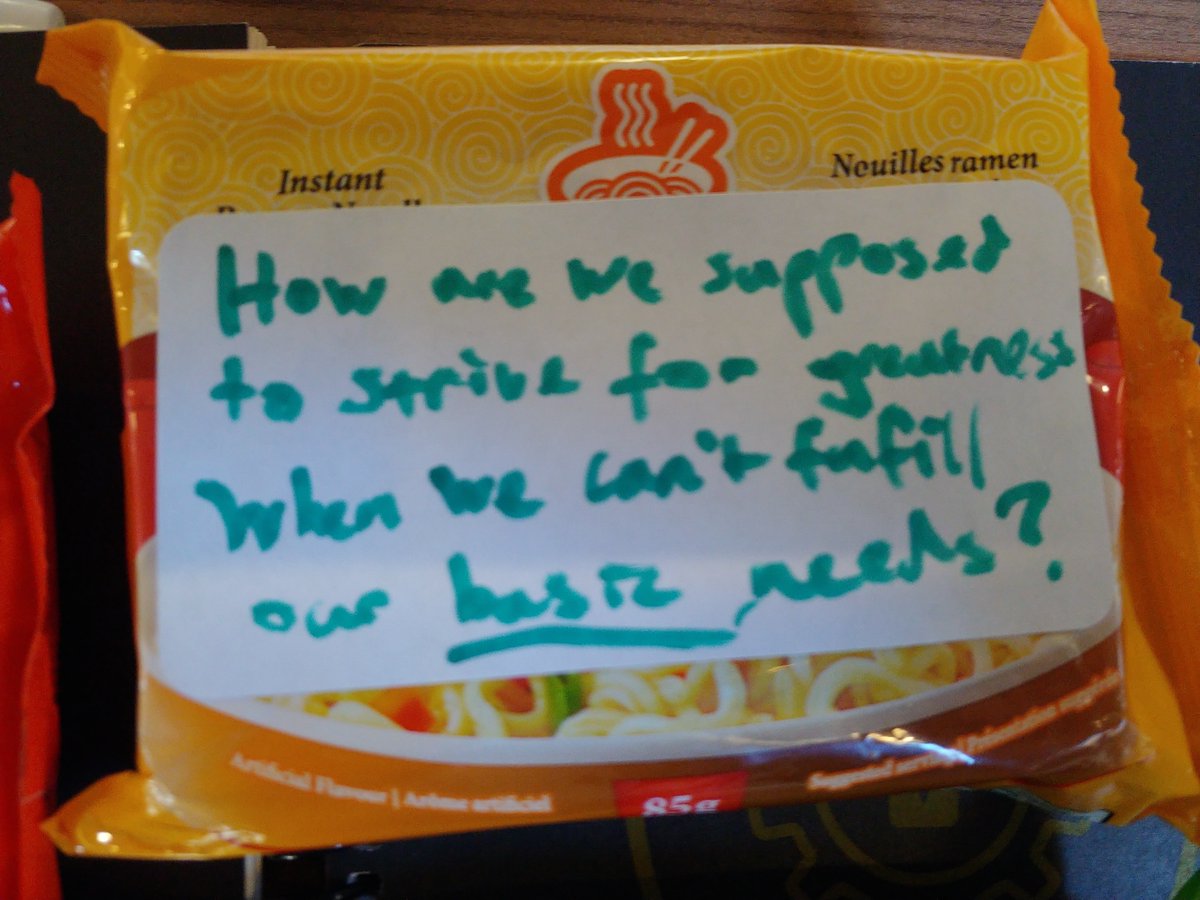 Instant
Nouilles ramen
How are we supposed
to strive for greatness
When we can't fufill
our basic needs?
Artificial Flavour | Arôme artificiel
85g
Suggested
Présentation suggérée